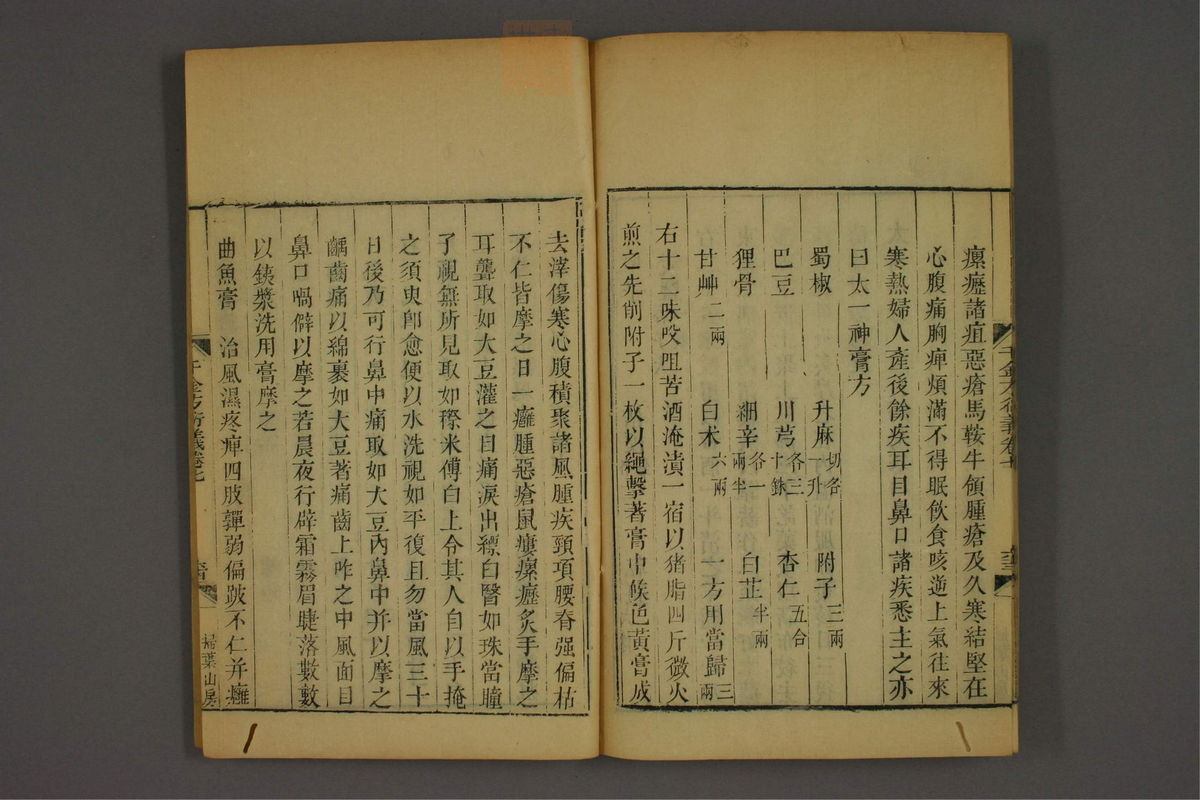 瘰癧諸疽惡瘡馬鞍牛領腫瘡及久寒結堅在
心腹痛胸痺煩滿不得眠飲食咳逆上氣往來
寒熱婦人產後餘疾耳目鼻口諸疾悉主之亦
曰太一神膏方
蜀椒 升麻切各一升 附子三兩
巴豆 川芎各三十銖 杏仁五合
狸骨 細辛各一兩半 白芷半兩
甘艸二兩 白朮六兩 一方用當歸三兩
右十二味㕮咀苦酒淹漬一宿以猪脂四斤微火
煎之先削附子一枚以繩擊著膏中候色黃膏成
去滓傷寒心腹積聚諸風腫疾頸項腰脊强偏枯
不仁皆摩之日一癰腫惡瘡鼠瘻瘰癧炙手摩之
耳聾取如大豆灌之目痛淚出縹白瞖如珠當瞳
子視無所見取如穄米傅白上令其人自以手掩
之須臾卽愈便以水洗視如平復且勿當風三十
日後乃可行鼻中痛取如大豆內鼻中并以摩之
齲齒痛以綿裹如大豆著痛齒上咋之中風面目
鼻口喎僻以摩之若晨夜行辟霜霧眉睫落數數
以鐵漿洗用膏摩之
曲魚膏 治風濕疼痺四肢嚲弱偏跛不仁并癰
千金方衍義卷七
掃葉山房